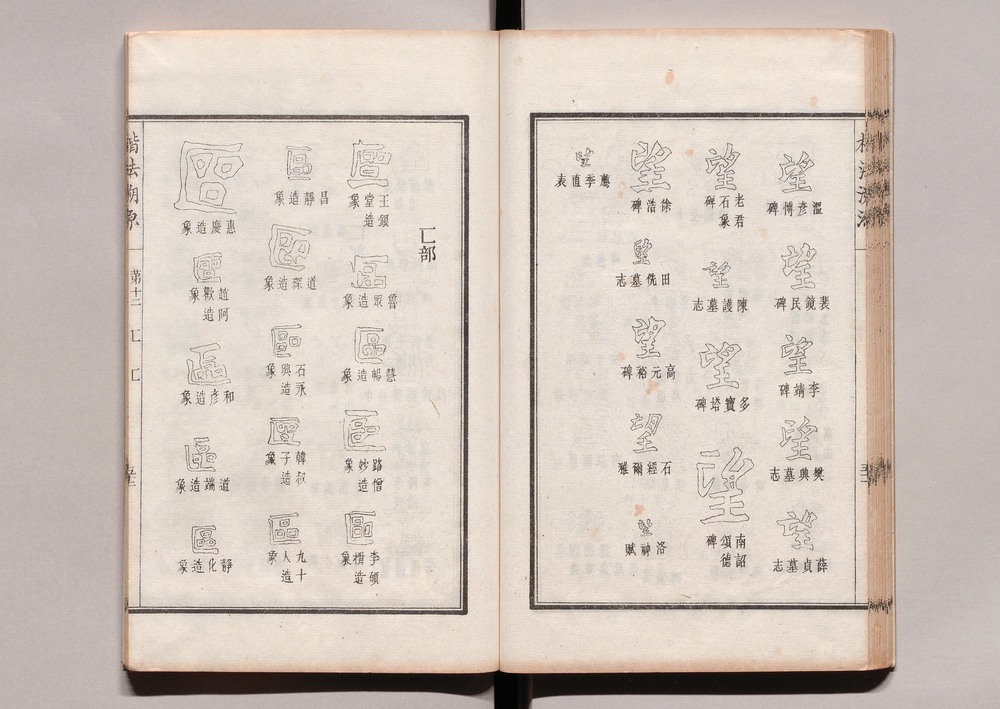 望
溫彥博碑
望
裴鏡民碑
望
李靖碑
望
樊典墓志
望
薛貞墓志
望
老君石象碑
望
陳護墓志
望
多寶塔碑
望
南詔德頌碑
望
徐浩碑
望
田侁墓志
望
高元裕碑
望
石經爾雅
望
洛神賦
望
薦季直表
匸部
區
王銀堂造象
區
魯眾造象
區
慧暢造象
區
路僧妙造象
區
造象
區
昌靜造象
區
道造象
區
石永興造象
區
韓叔子造象
區
九十人造象
區
惠慶造象
區
趙阿歡造象
區
和彥造象
區
道端造象
區
靜化造象
楷法溯原
第十二